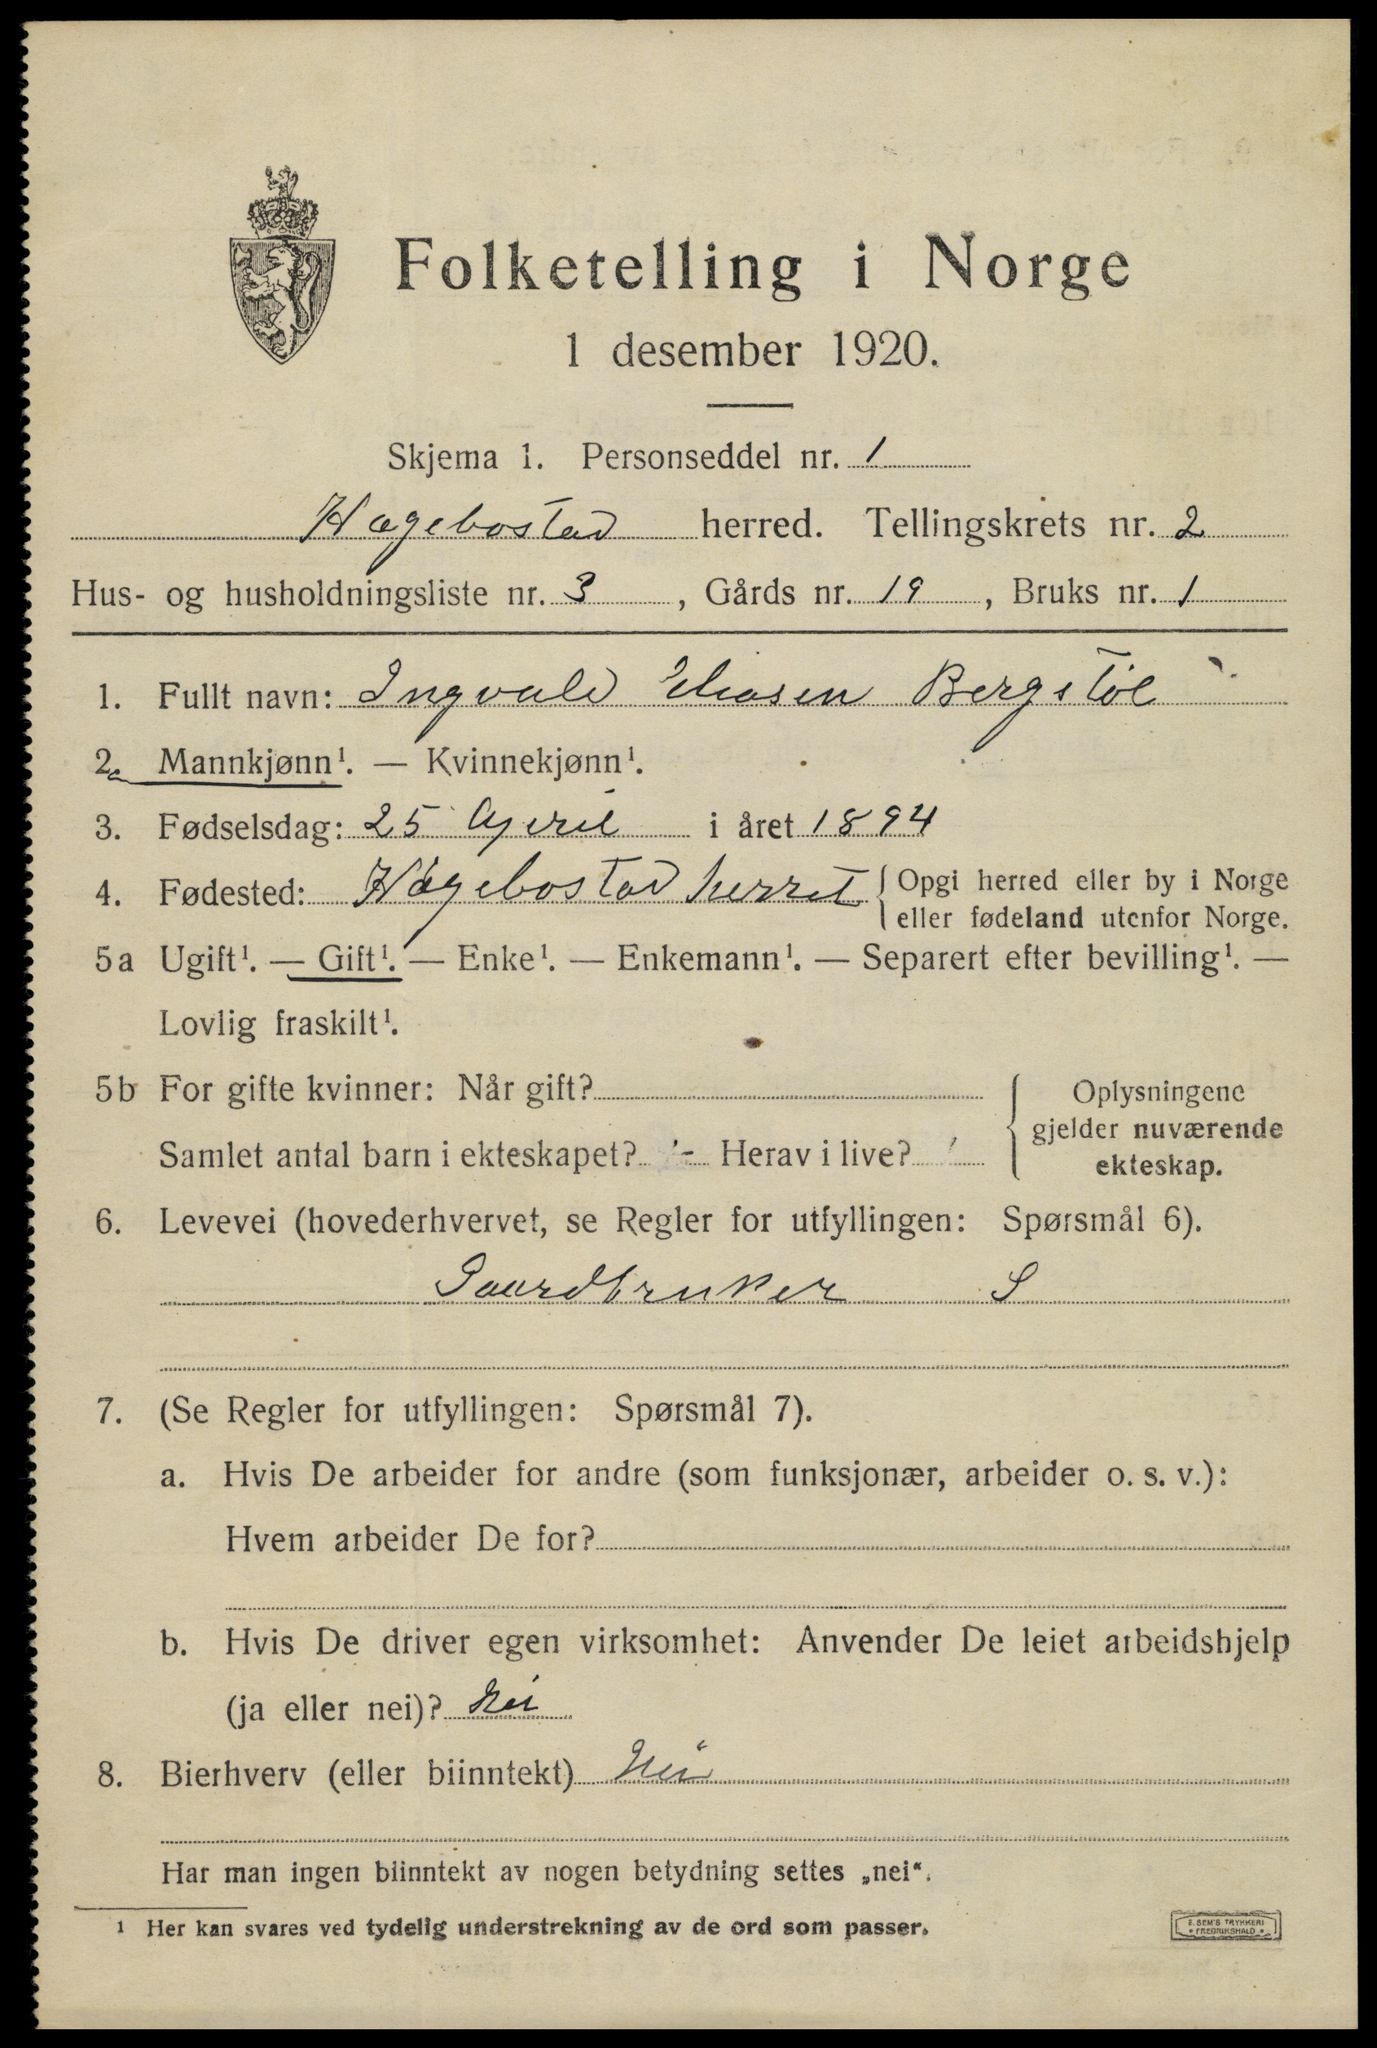 Folketelling i Norge
1 desember 1920.
Skjema 1. Personseddel nr. 1
Hægebostad herred. Tellingskrets nr. 2
Hus- og husholdningsliste nr. 3, Gårds nr. 19, Bruks nr. 1
1. Fullt navn: Ingvald Eliasen Bergstöl
2. Mannkjønn¹. — Kvinnekjønn¹.
3. Fødselsdag: 25 April i året 1894
4. Fødested: Hægebostad herret { Opgi herred eller by i Norge
eller fødeland utenfor Norge.
5a Ugift¹. — Gift¹. — Enke¹. — Enkemann¹. — Separert efter bevilling¹. —
Lovlig fraskilt¹.
5b For gifte kvinner: Når gift?
Samlet antal barn i ekteskapet? - Herav i live?
Oplysningene
gjelder nuværende
ekteskap.
6. Levevei (hovederhvervet, se Regler for utfyllingen: Spørsmål 6).
Gaardbruker S
7. (Se Regler for utfyllingen: Spørsmål 7).
a. Hvis De arbeider for andre (som funksjonær, arbeider o. s. v.):
Hvem arbeider De for?
b. Hvis De driver egen virksomhet: Anvender De leiet arbeidshjelp
(ja eller nei)? Nei
8. Bierhverv (eller biinntekt) Nei
Har man ingen biinntekt av nogen betydning settes „nei“.
1 Her kan svares ved tydelig understrekning av de ord som passer.
E. SEM'S TRYKKERI
• FREDRIKSHALD •